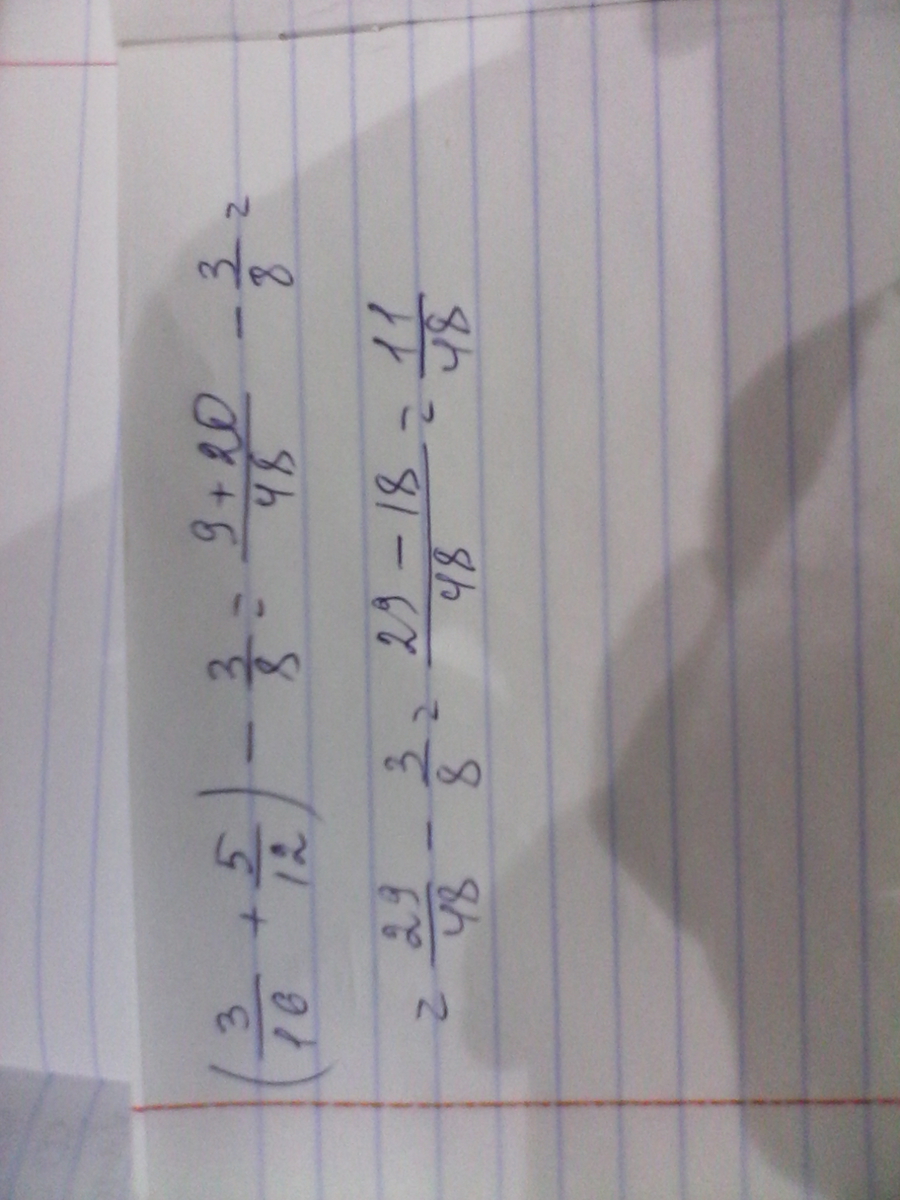 (3/16 + 5/12) - 3/8 = (9+20)/48 - 3/8 =
= 29/48 - 3/8 = (29-18)/48 = 11/48